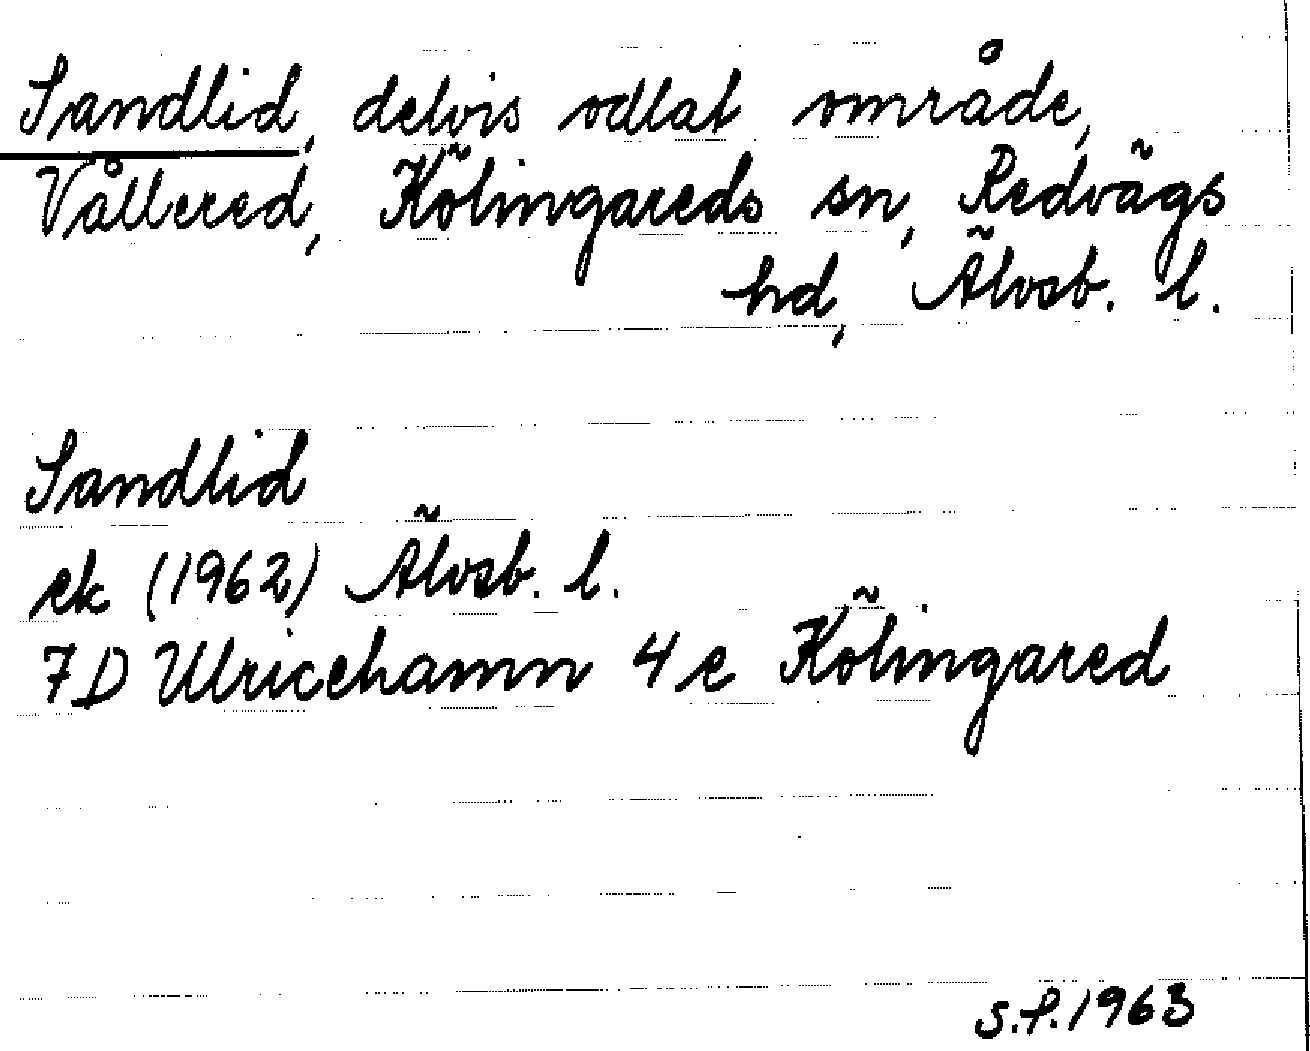 Sandlid, delvis odlat område,
Vållered, Kölingareds sn, Redvägs
hd, Älvsb. l.
Sandlid
ek (1962) Älvsb. l.
7D Ulricehamn 4e Kölingared
S.P. 1963